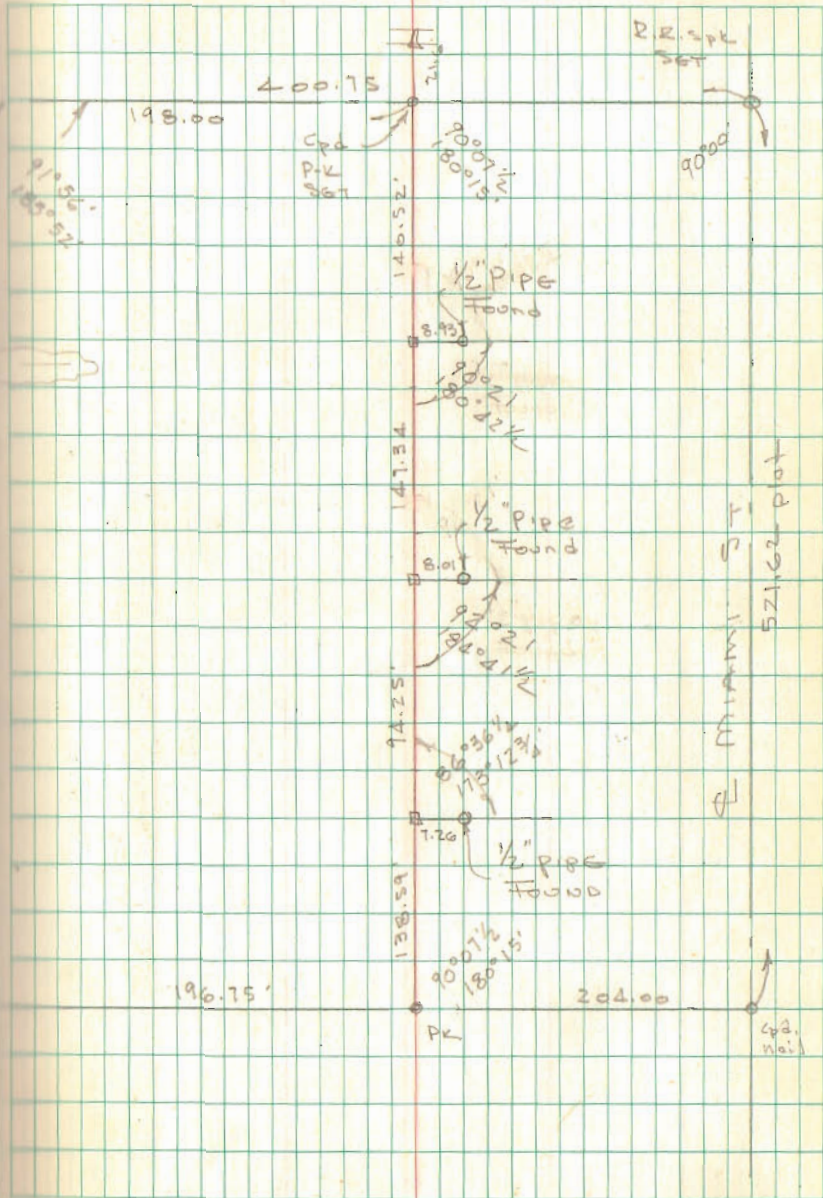 R.R. SPK
SET
400.75
198.00
Cpd
P.K
SET
90°07 1/2
180°15'
90°00'
91°56'
140.52'
1/2" PIPE
Found
8.93
90°21
180°42 1/2
147.34
1/2" PIPE
Found
8.01
94°21
94.25'
86°36 1/4
173°12 3/4
7.26
1/2" PIPE
FOUND
138.59'
90°07 1/2
180°15'
196.75'
204.00
PK
cpd.
nail
℄ MIAMI ST
521.62 plat